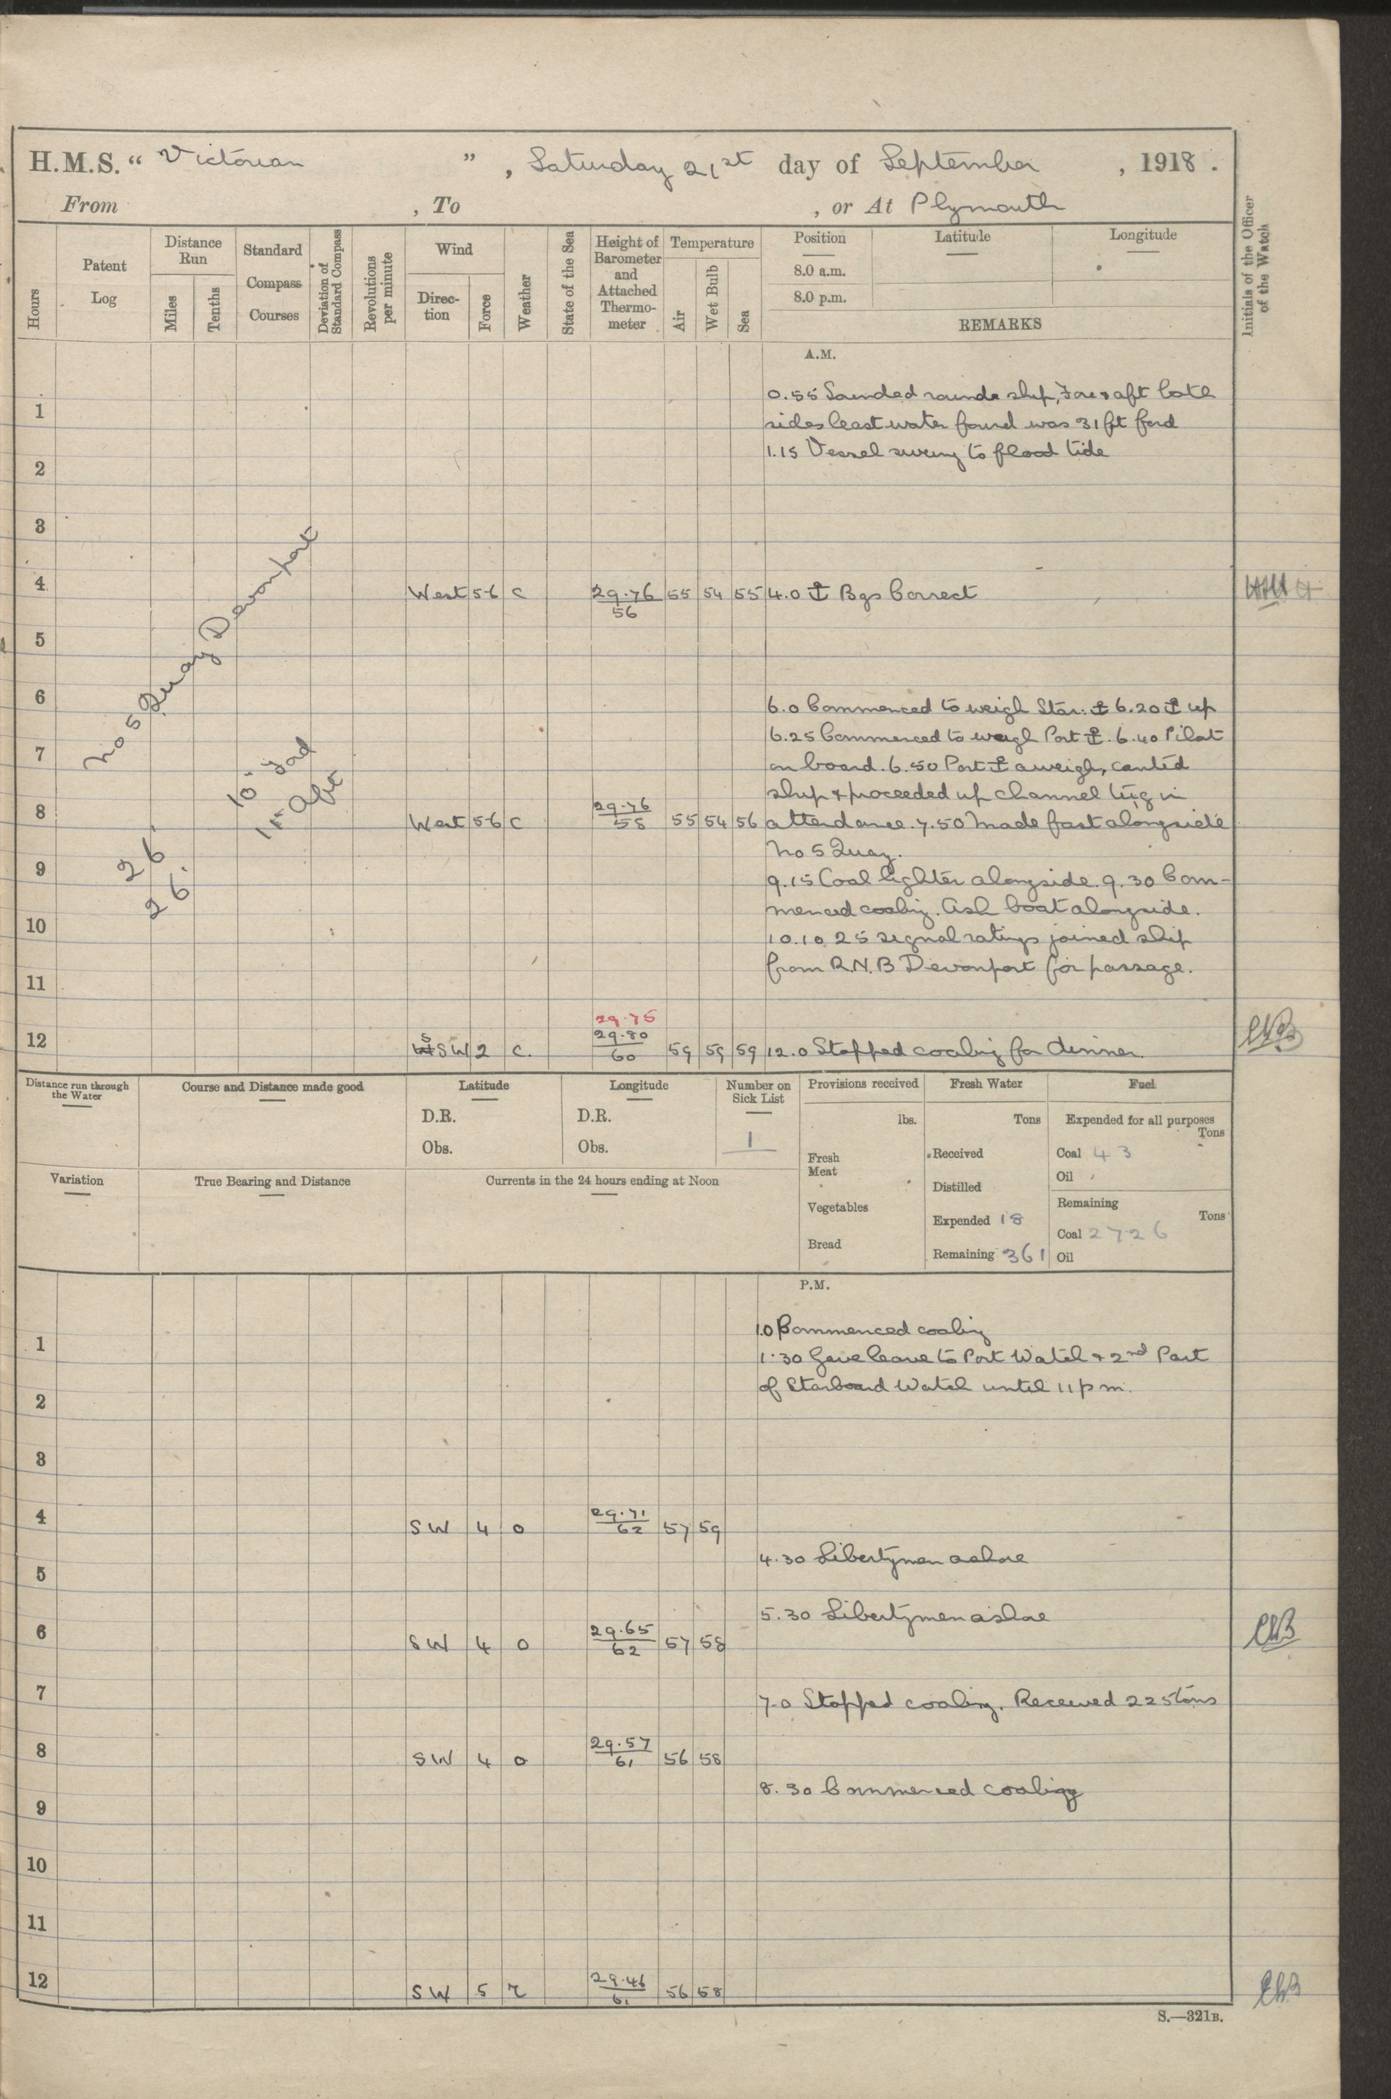 H.M.S. “ Victorian ” , Saturday 21st day of September , 1918 .
From , To , or At Plymouth
Hours
Patent Log
Distance Run
Miles
Tenths
Standard Compass Courses
Deviation of Standard Compass
Revolutions per minute
Wind
Direction
Force
Weather
State of the Sea
Height of Barometer and Attached Thermometer
Temperature
Air
Wet Bulb
Sea
Position
Latitude
Longitude
8.0 a.m.
8.0 p.m.
REMARKS
Initials of the Officer of the Watch
A.M.
0.55 Sounded rounds ship, Fore & aft both
1
sides least water found was 31 ft
1.15 Vessel swung to flood tide
2
3
No 5 Quay Devonport
4 West 5-6 c 29.76 56 55 54 55 4.0 ⚓ Bgs Correct
5
6
6.0 Commenced to weigh Star: ⚓ 6.20 ⚓ up
6.25 Commenced to weigh Port ⚓. 6.40 Pilot
7
on board. 6.50 Port ⚓ aweigh, canted
ship & proceeded up channel tug in
8 West 5-6 c 29.76 58 55 54 56 attendance. 7.50 Made fast alongside
No 5 Quay.
26'
26'
9
9.15 Coal lighter alongside. 9.30 Com-
menced coaling. Ash boat alongside.
10
10.10 25 signal ratings joined ship
from R.N.B Devonport for passage.
11
29.75
12 SSW 2 c. 29.80 60 59 59 59 12.0 Stopped coaling for dinner
Distance run through the Water
Course and Distance made good
Latitude
D.R.
Obs.
Longitude
D.R.
Obs.
Number on Sick List
1
Provisions received
lbs.
Fresh Meat
Vegetables
Bread
Fresh Water
Tons
Received
Distilled
Expended 18
Remaining 361
Fuel
Expended for all purposes
Tons
Coal 43
Oil
Remaining
Tons
Coal 2726
Oil
Variation
True Bearing and Distance
Currents in the 24 hours ending at Noon
P.M.
1.0 Commenced coaling
1
1.30 Gave leave to Port Watch & 2nd Part
of Starboard Watch until 11 pm.
2
3
4 SW 4 o 29.71 62 57 59
4.30 Libertymen ashore
5
5.30 Libertymen ashore
6 SW 4 o 29.65 62 57 58
7
7.0 Stopped coaling. Received 225 tons
8 SW 4 o 29.57 61 56 58
8.30 Commenced coaling
9
10
11
12 SW 5 r 29.46 61 56 58
S.—321B.